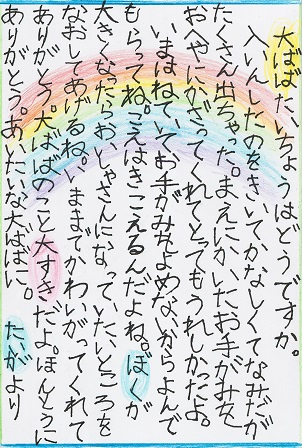 大ばば、たいちょうはどうですか。
入いんしたのをきいてかなしくてなみだが
たくさん出ちゃった。まえにかいたお手がみを
おへやにかざってくれてとってもうれしかったよ。
いまはねていてお手がみをよめないからよんで
もらってね。こえはきこえるんだよね。ぼくが
大きくなったらおいしゃさんになっていたいところを
なおしてあげるね。いままでかわいがってくれて
ありがとう。大ばばのこと大すきだよ。ほんとうに
ありがとう。あいたいな大ばばに。
たいがより